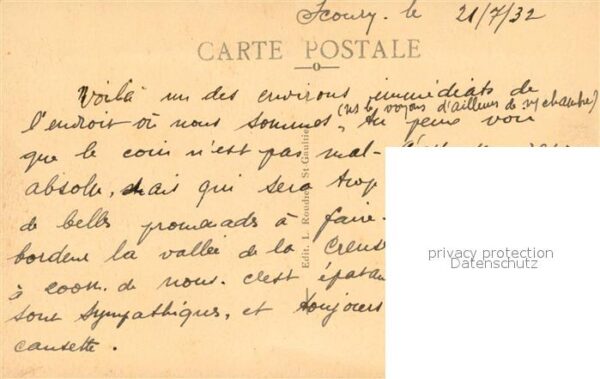 Scoury. le 21/7/32
CARTE POSTALE
Voilà un des environs immédiats de
(ns le voyons d'ailleurs de ns chambre)
l'endroit où nous sommes, tu peux voir
que le coin n'est pas mal
absolu, mais qui sera trop
de belles promenades à faire
bordent la vallée de la Creuse
à 200m. de nous. c'est épatan
sont sympathiques, et toujours
causette.
Edit. L. Roudier St Gaultier
privacy protection
Datenschutz